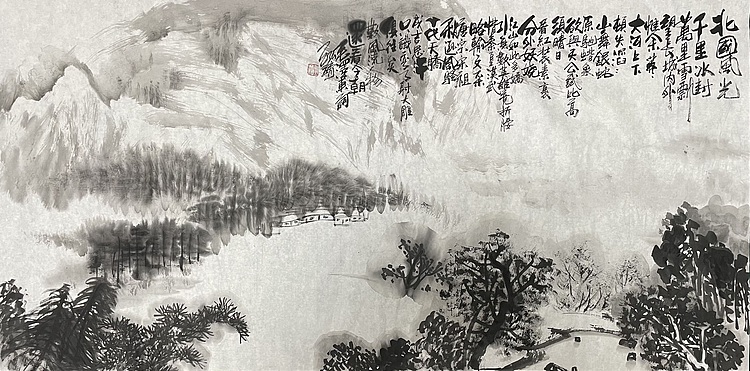 北國風光
千里冰封
萬里雪飄
望長城內外
惟余莽
大河上下
頓失滔滔
山舞銀蛇
原馳蠟象
欲與天公試比高
須晴日
看紅裝素裹
分外妖嬈
江山如此多嬌
引無數英雄竞折腰
惜秦皇漢武
略輸文采
唐宗宋祖
稍遜風騷
一代天驕
成吉思汗
只識彎弓射大雕
俱往矣
數風流人物
還看今朝